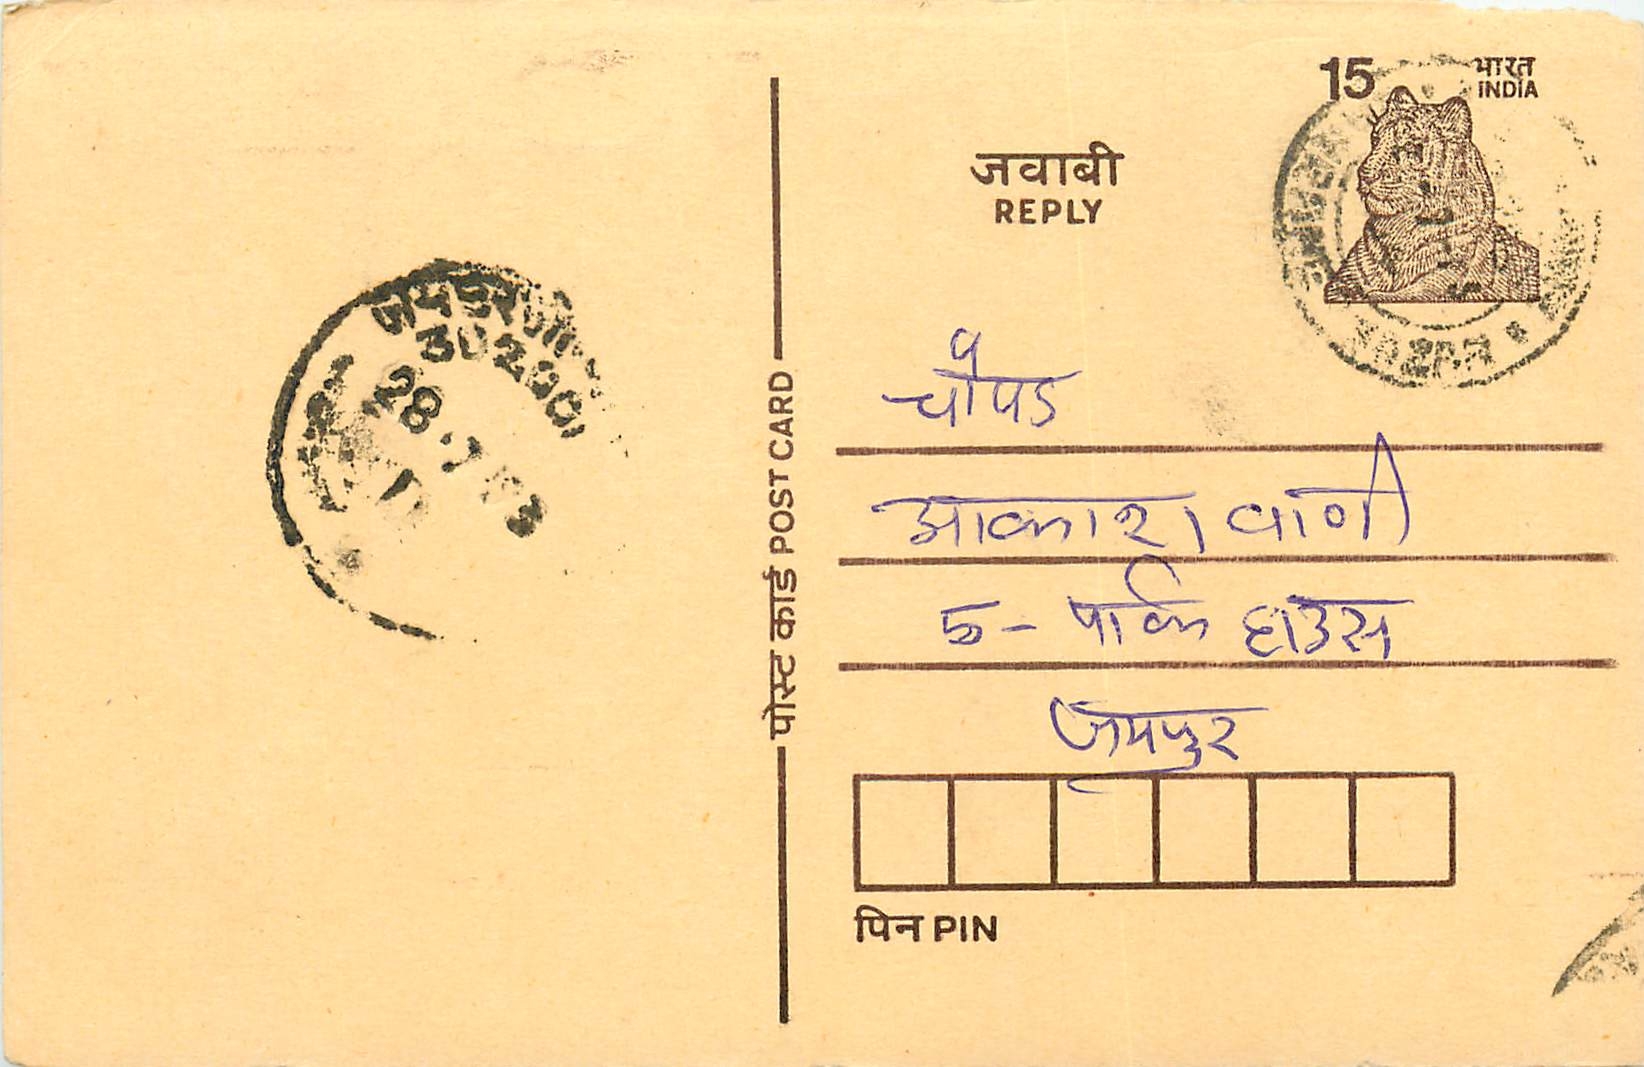 15
भारत
INDIA
जवाबी
REPLY
चौपड
आकाशवाणी
5- पार्क हाउस
जयपुर
पोस्ट कार्ड POST CARD
पिन PIN
302001
28.7